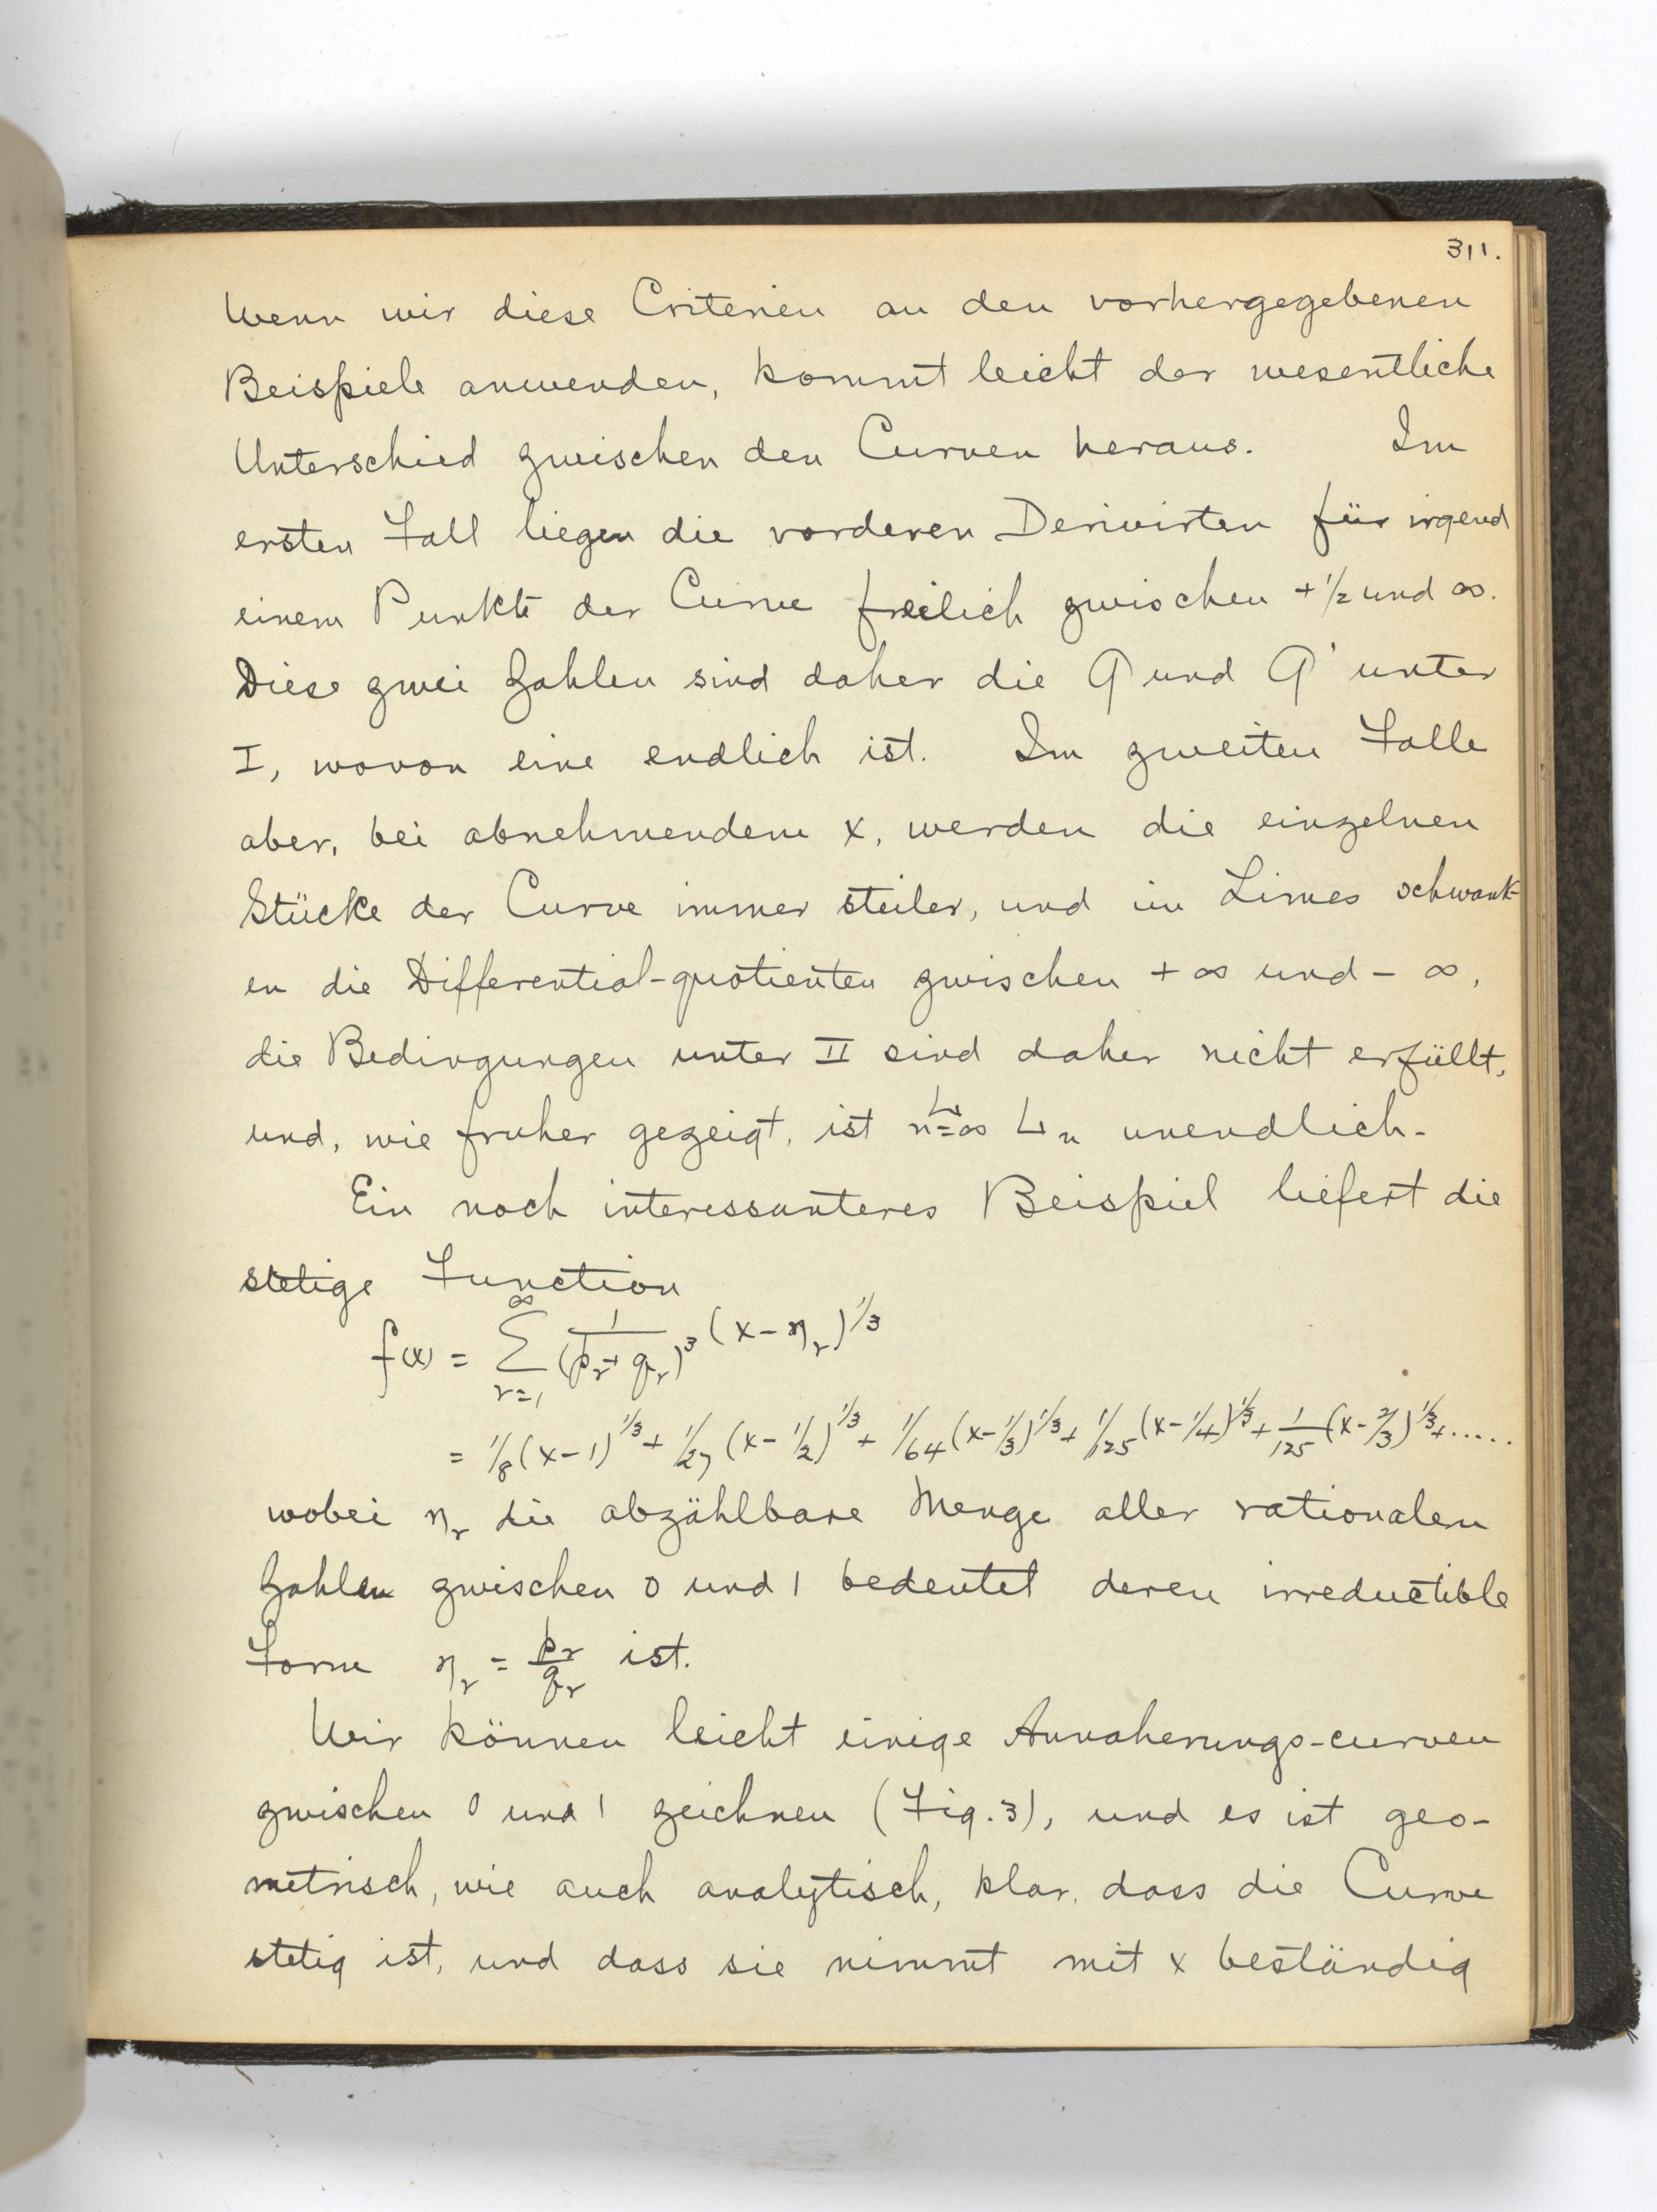 311.
Wenn wir diese Criterien an den vorhergegebenen
Beispiele anwenden, kommt leicht der wesentliche
Unterschied zwischen den Curven heraus. Im
ersten Fall liegen die vorderen Derivirten für irgend
einem Punkte der Curve freilich zwischen +1/2 und ∞.
Diese zwei Zahlen sind daher die G und G' unter
I, wovon eine endlich ist. Im zweiten Falle
aber, bei abnehmendem x, werden die einzelnen
Stücke der Curve immer steiler, und im Limes schwank-
en die Differential-quotienten zwischen + ∞ und - ∞,
die Bedingungen unter II sind daher nicht erfüllt,
und, wie fruher gezeigt, ist L n=∞ L_n unendlich.
Ein noch interessanteres Beispiel liefert die
stetige Function
f(x) = ∑_{r=1}^{∞} 1/(p_r + q_r)^3 (x - η_r)^{1/3}
= 1/8 (x-1)^{1/3} + 1/27 (x - 1/2)^{1/3} + 1/64 (x - 1/3)^{1/3} + 1/125 (x - 1/4)^{1/3} + 1/125 (x - 2/3)^{1/3} + .....
wobei η_r die abzählbare Menge aller rationalen
Zahlen zwischen 0 und 1 bedeutet deren irreductible
Form η_r = p_r/q_r ist.
Wir können leicht einige Annaherungs-curven
zwischen 0 und 1 zeichnen (Fig. 3), und es ist geo-
metrisch, wie auch analytisch, klar, dass die Curve
stetig ist, und dass sie nimmt mit x beständig